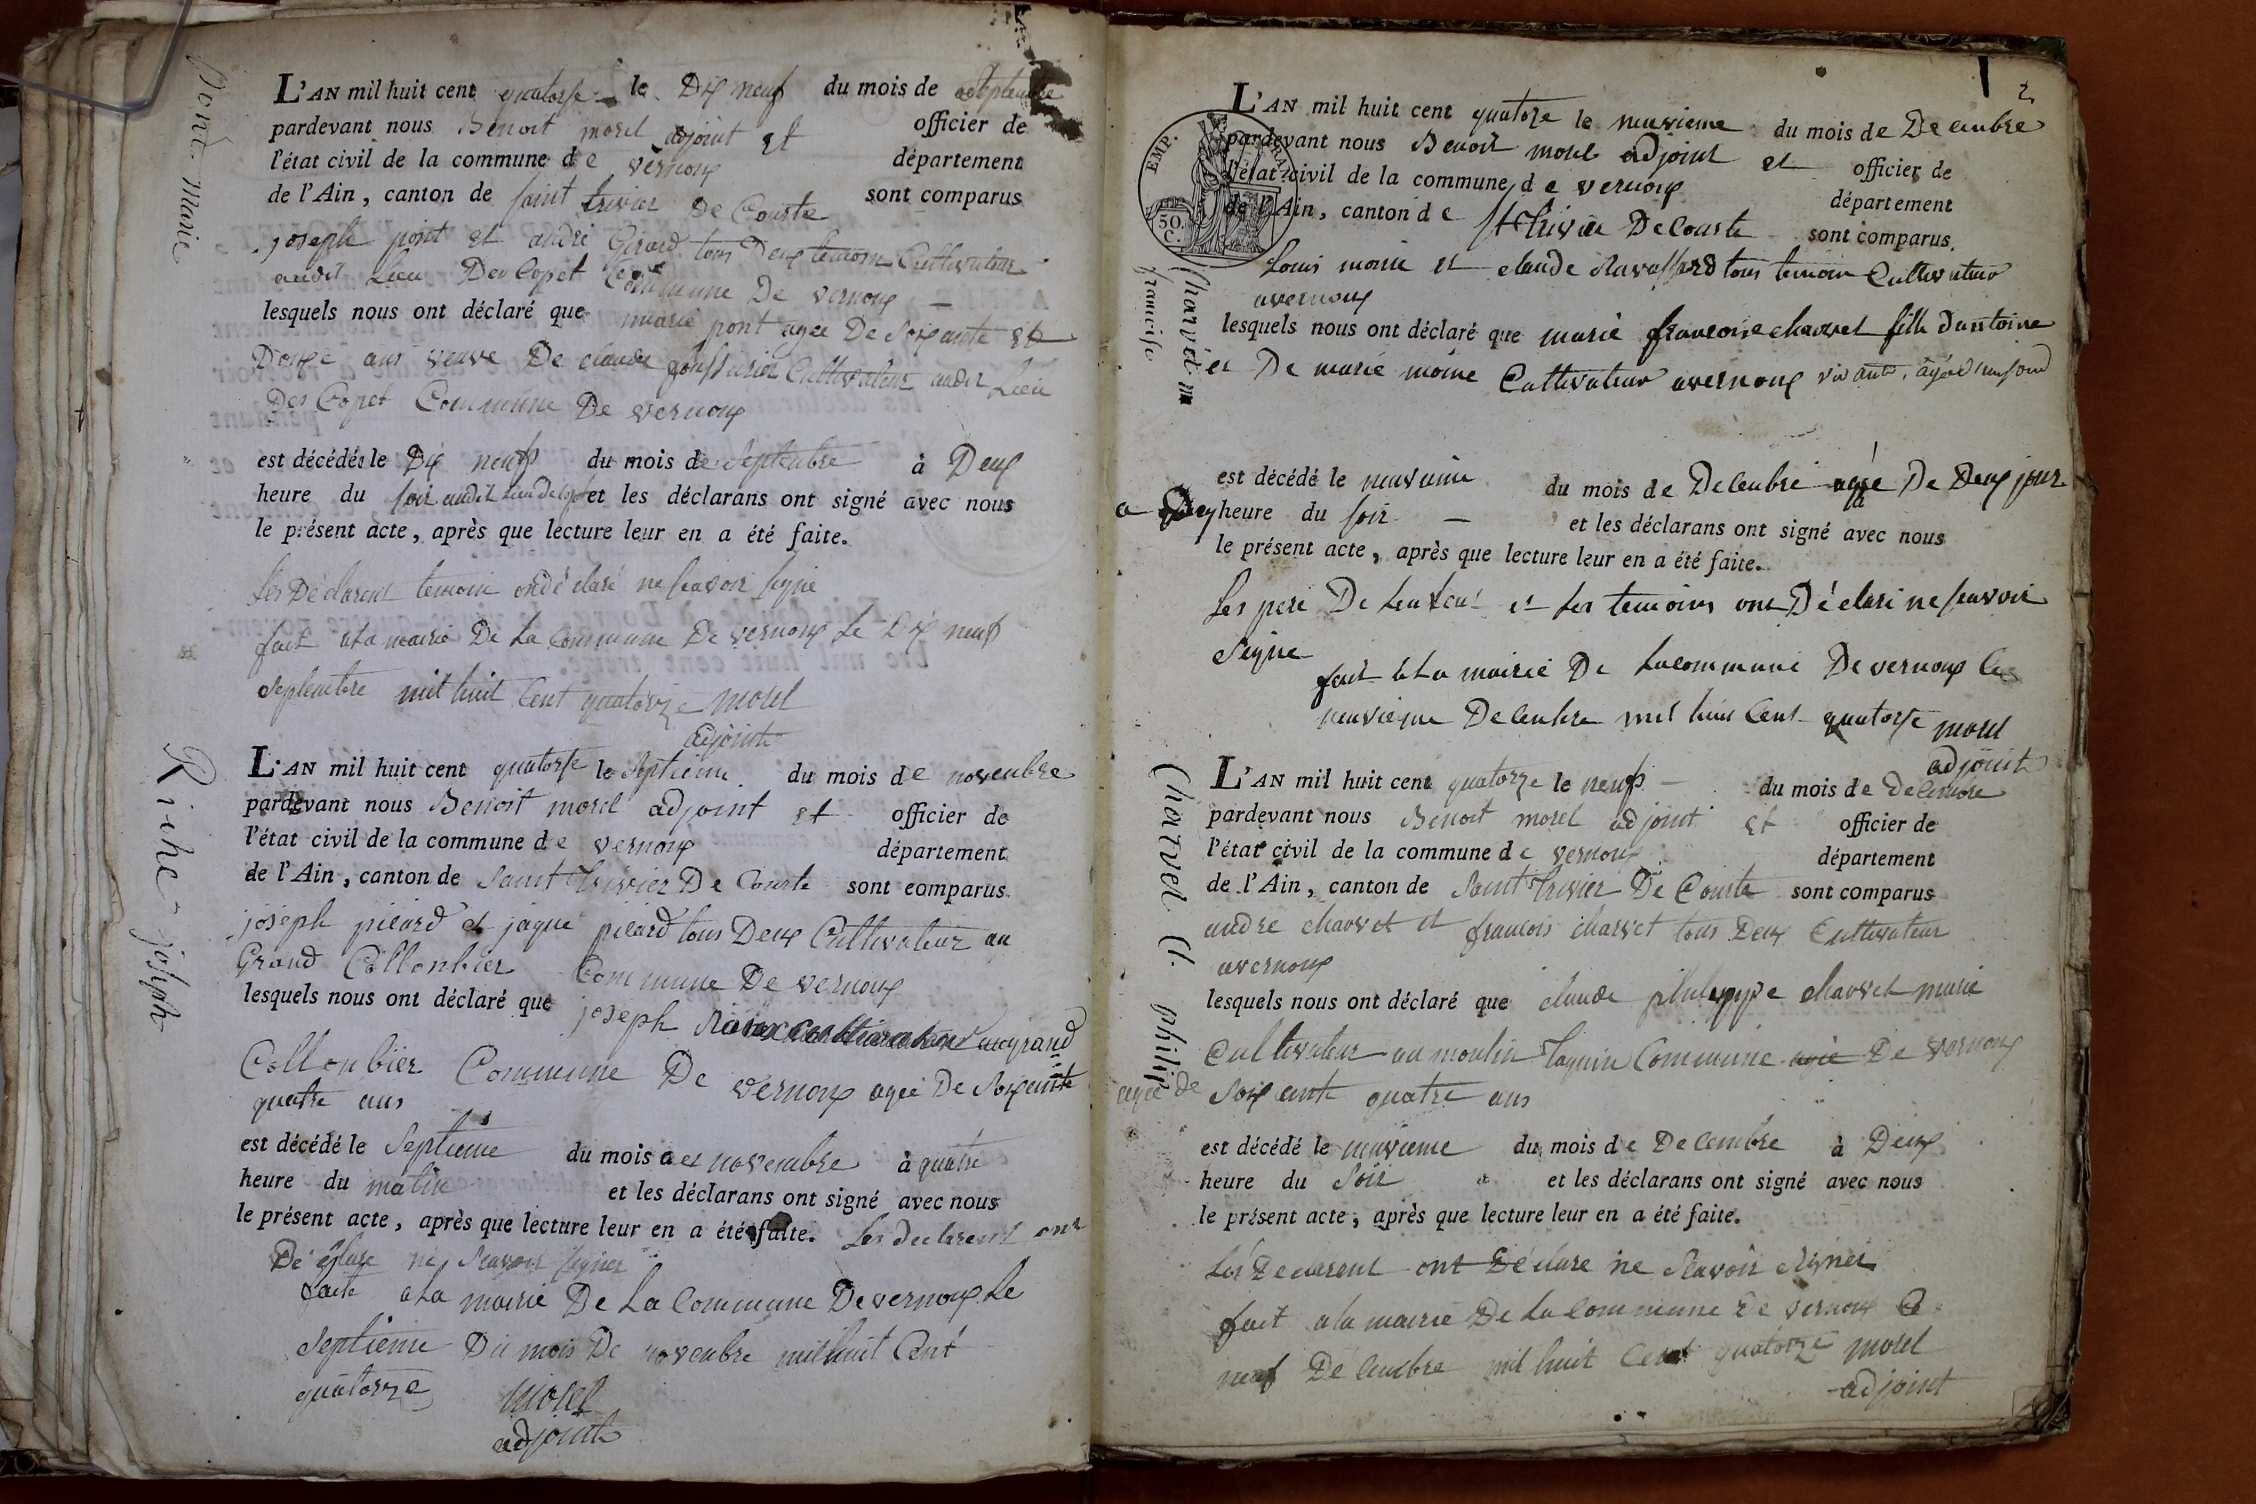 Pont Marie
L'AN mil huit cent quatorse le Dix neuf du mois de septembre
pardevant nous Benoit morel adjoint et officier de
l'état civil de la commune de vernoux département
de l'Ain, canton de saint trivier De Courte sont comparus
joseph pont et andré Girard tous Deux temoin Cultivateur
audit Lieu Des Copet Commune De vernoux
lesquels nous ont déclaré que marie pont agee De Soixante et
Douze ans veuve De claude Cultivateur audit Lieu
Des Copet Commune De vernoux
est décédée le Dix neuf du mois de Septembre à Deux
heure du soir audit Lieu et les déclarans ont signé avec nous
le présent acte, après que lecture leur en a été faite.
Les Déclarent temoin ondéclaré ne seavoir signe
fait a La mairie De La Commune De vernoux Le Dix neuf
septembre mil huit Cent quatorze morel
adjoint
Riche joseph
L'AN mil huit cent quatorse le septieme du mois de novembre
pardevant nous Benoit morel adjoint et officier de
l'état civil de la commune de vernoux département
de l'Ain, canton de Saint trivier De Courte sont comparus
joseph picard et jaque picard tous Deux Cultivateur au
Grand Collonbier Commune De vernoux
lesquels nous ont déclaré que joseph augrand
Collonbier Commune De vernoux agee De Soixante
quatre ans
est décédé le Septieme du mois de novembre à quatre
heure du matin et les déclarans ont signé avec nous
le présent acte, après que lecture leur en a été faite. Les declarent ont
Déclare ne Scavoir signer
faite a La mairie De La Commune De vernoux Le
Septieme Du mois De novembre mil huit Cent
quatorze morel
adjoint
2
EMP. FRA
50 C.
Charvet m
francoise
L'AN mil huit cent quatorze le neuvieme du mois de Decembre
pardevant nous Benoit morel adjoint et officier de
l'état civil de la commune de vernoux département
de l'Ain, canton de St trivier De Courte sont comparus.
Louis moine et claude Ravassard tous temoin Cultivateur
avernoux
lesquels nous ont déclaré que marie francoise charvet fille dantoine
et De marie moine Cultivateur avernoux vivant
est décédé le neuvieme du mois de Decenbre agée De Deux jour
a heure du soir et les déclarans ont signé avec nous
le présent acte, après que lecture leur en a été faite.
Les pere De Lenfent et Les temoins ont Déclaré ne seavoir
Signe
fait a La mairie De Lacommune De vernoux Le
neuvieme Decenbre mil huit Cent quatorse morel
adjoint
Charvet Cl. philip
L'AN mil huit cent quatorze le neuf du mois de Decenbre
pardevant nous Benoit morel adjoint et officier de
l'état civil de la commune de vernoux département
de l'Ain, canton de Saint trivier De Courte sont comparus
andre charvet et francois charvet tous Deux Cultivateur
avernoux
lesquels nous ont déclaré que claude philippe charvet marie
Cultivateur au moulin Commune agée De vernoux
agée de Soix ante quatre ans
est décédé le neuvieme du mois de Decembre à Deux
heure du Soir et les déclarans ont signé avec nous
le présent acte, après que lecture leur en a été faite.
Les Declarent ont Déclare ne Scavoir Signer
fait a la mairie De La Commune De vernoux Le
neuf Decenbre mil huit Cent quatorze morel
adjoint